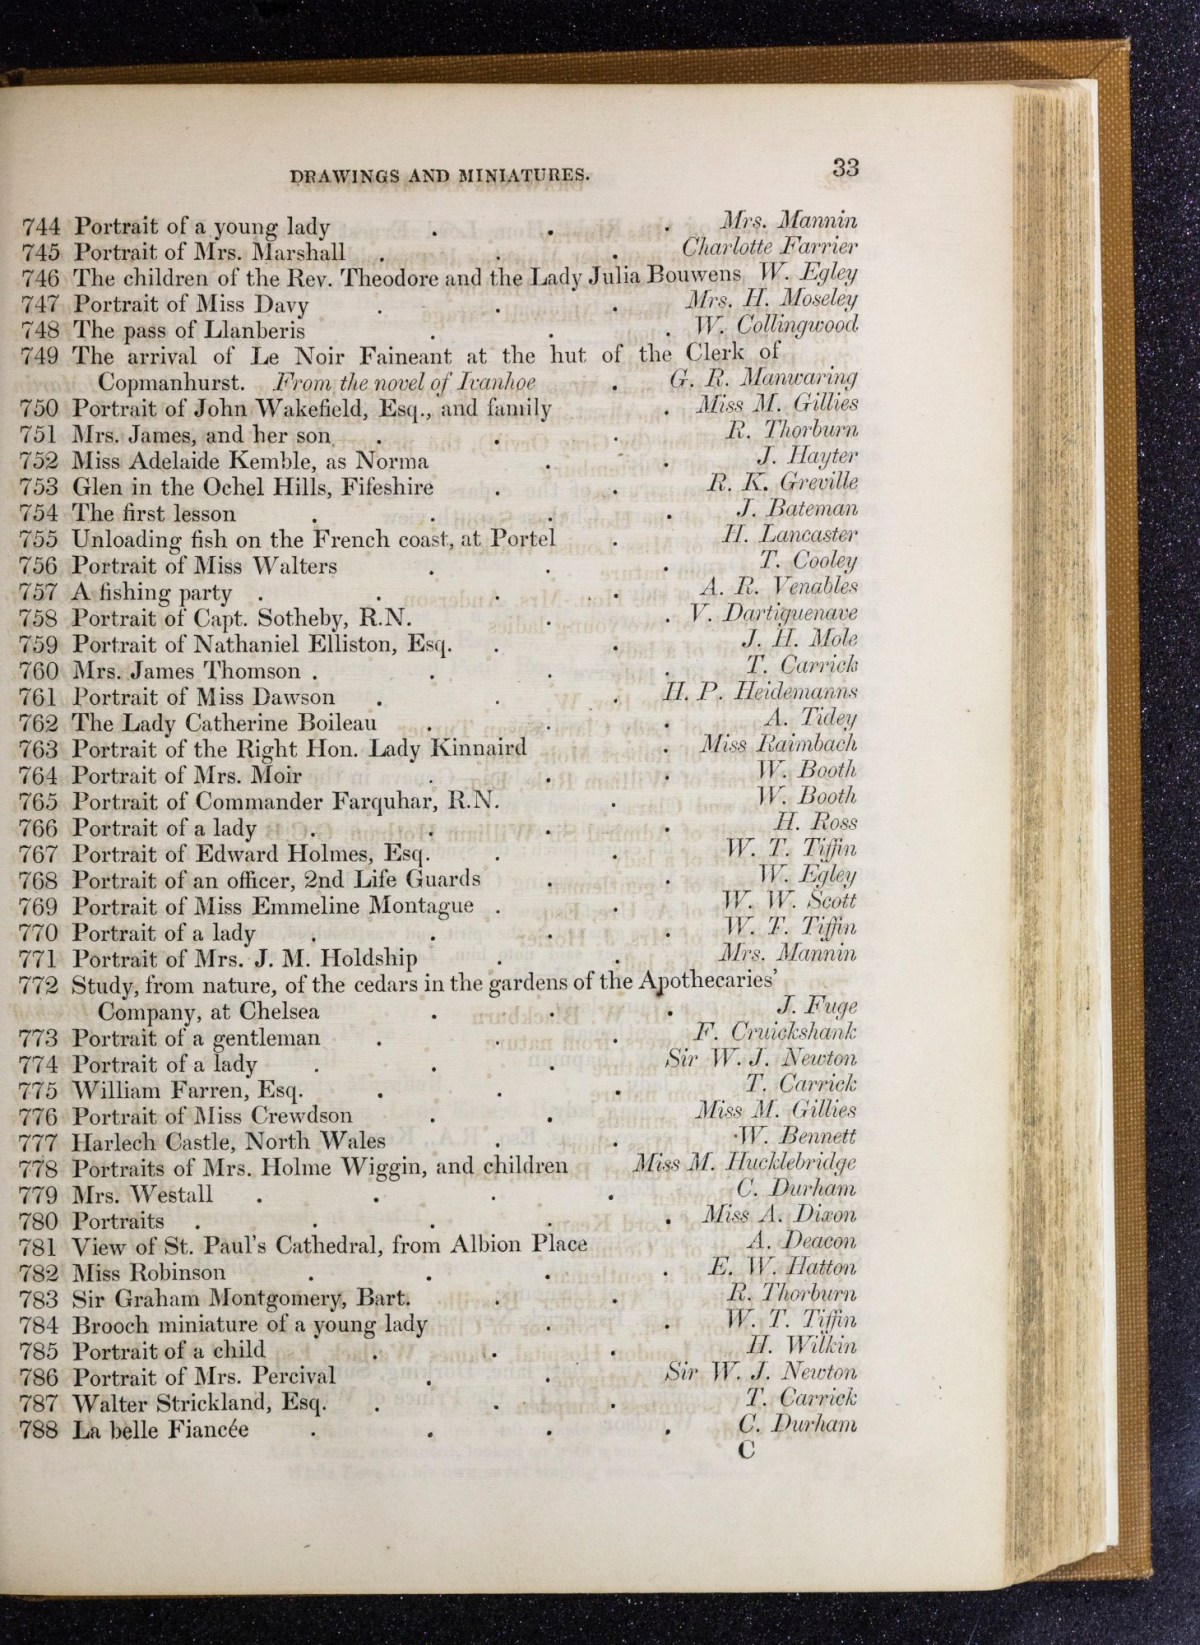 DRAWINGS AND MINIATURES. 33
744 Portrait of a young lady . . . Mrs. Mannin
745 Portrait of Mrs. Marshall . . . Charlotte Farrier
746 The children of the Rev. Theodore and the Lady Julia Bouwens W. Egley
747 Portrait of Miss Davy . . . Mrs. H. Moseley
748 The pass of Llanberis . . . W. Collingwood
749 The arrival of Le Noir Faineant at the hut of the Clerk of
Copmanhurst. From the novel of Ivanhoe . G. R. Manwaring
750 Portrait of John Wakefield, Esq., and family . Miss M. Gillies
751 Mrs. James, and her son . . . R. Thorburn
752 Miss Adelaide Kemble, as Norma . . J. Hayter
753 Glen in the Ochel Hills, Fifeshire . . R. K. Greville
754 The first lesson . . . . J. Bateman
755 Unloading fish on the French coast, at Portel . H. Lancaster
756 Portrait of Miss Walters . . . T. Cooley
757 A fishing party . . . . A. R. Venables
758 Portrait of Capt. Sotheby, R.N. . . V. Dartiguenave
759 Portrait of Nathaniel Elliston, Esq. . . J. H. Mole
760 Mrs. James Thomson . . . . T. Carrick
761 Portrait of Miss Dawson . . . H. P. Heidemanns
762 The Lady Catherine Boileau . . . A. Tidey
763 Portrait of the Right Hon. Lady Kinnaird . Miss Raimbach
764 Portrait of Mrs. Moir . . . W. Booth
765 Portrait of Commander Farquhar, R.N. . W. Booth
766 Portrait of a lady . . . . H. Ross
767 Portrait of Edward Holmes, Esq. . . W. T. Tiffin
768 Portrait of an officer, 2nd Life Guards . . W. Egley
769 Portrait of Miss Emmeline Montague . . W. W. Scott
770 Portrait of a lady . . . . W. T. Tiffin
771 Portrait of Mrs. J. M. Holdship . . Mrs. Mannin
772 Study, from nature, of the cedars in the gardens of the Apothecaries'
Company, at Chelsea . . . J. Fuge
773 Portrait of a gentleman . . . F. Cruickshank
774 Portrait of a lady . . . Sir W. J. Newton
775 William Farren, Esq. . . . T. Carrick
776 Portrait of Miss Crewdson . . Miss M. Gillies
777 Harlech Castle, North Wales . . W. Bennett
778 Portraits of Mrs. Holme Wiggin, and children Miss M. Hucklebridge
779 Mrs. Westall . . . . C. Durham
780 Portraits . . . . . Miss A. Dixon
781 View of St. Paul's Cathedral, from Albion Place A. Deacon
782 Miss Robinson . . . . E. W. Hatton
783 Sir Graham Montgomery, Bart. . . R. Thorburn
784 Brooch miniature of a young lady . . W. T. Tiffin
785 Portrait of a child . . . H. Wilkin
786 Portrait of Mrs. Percival . . Sir W. J. Newton
787 Walter Strickland, Esq. . . . T. Carrick
788 La belle Fiancée . . . . C. Durham
C